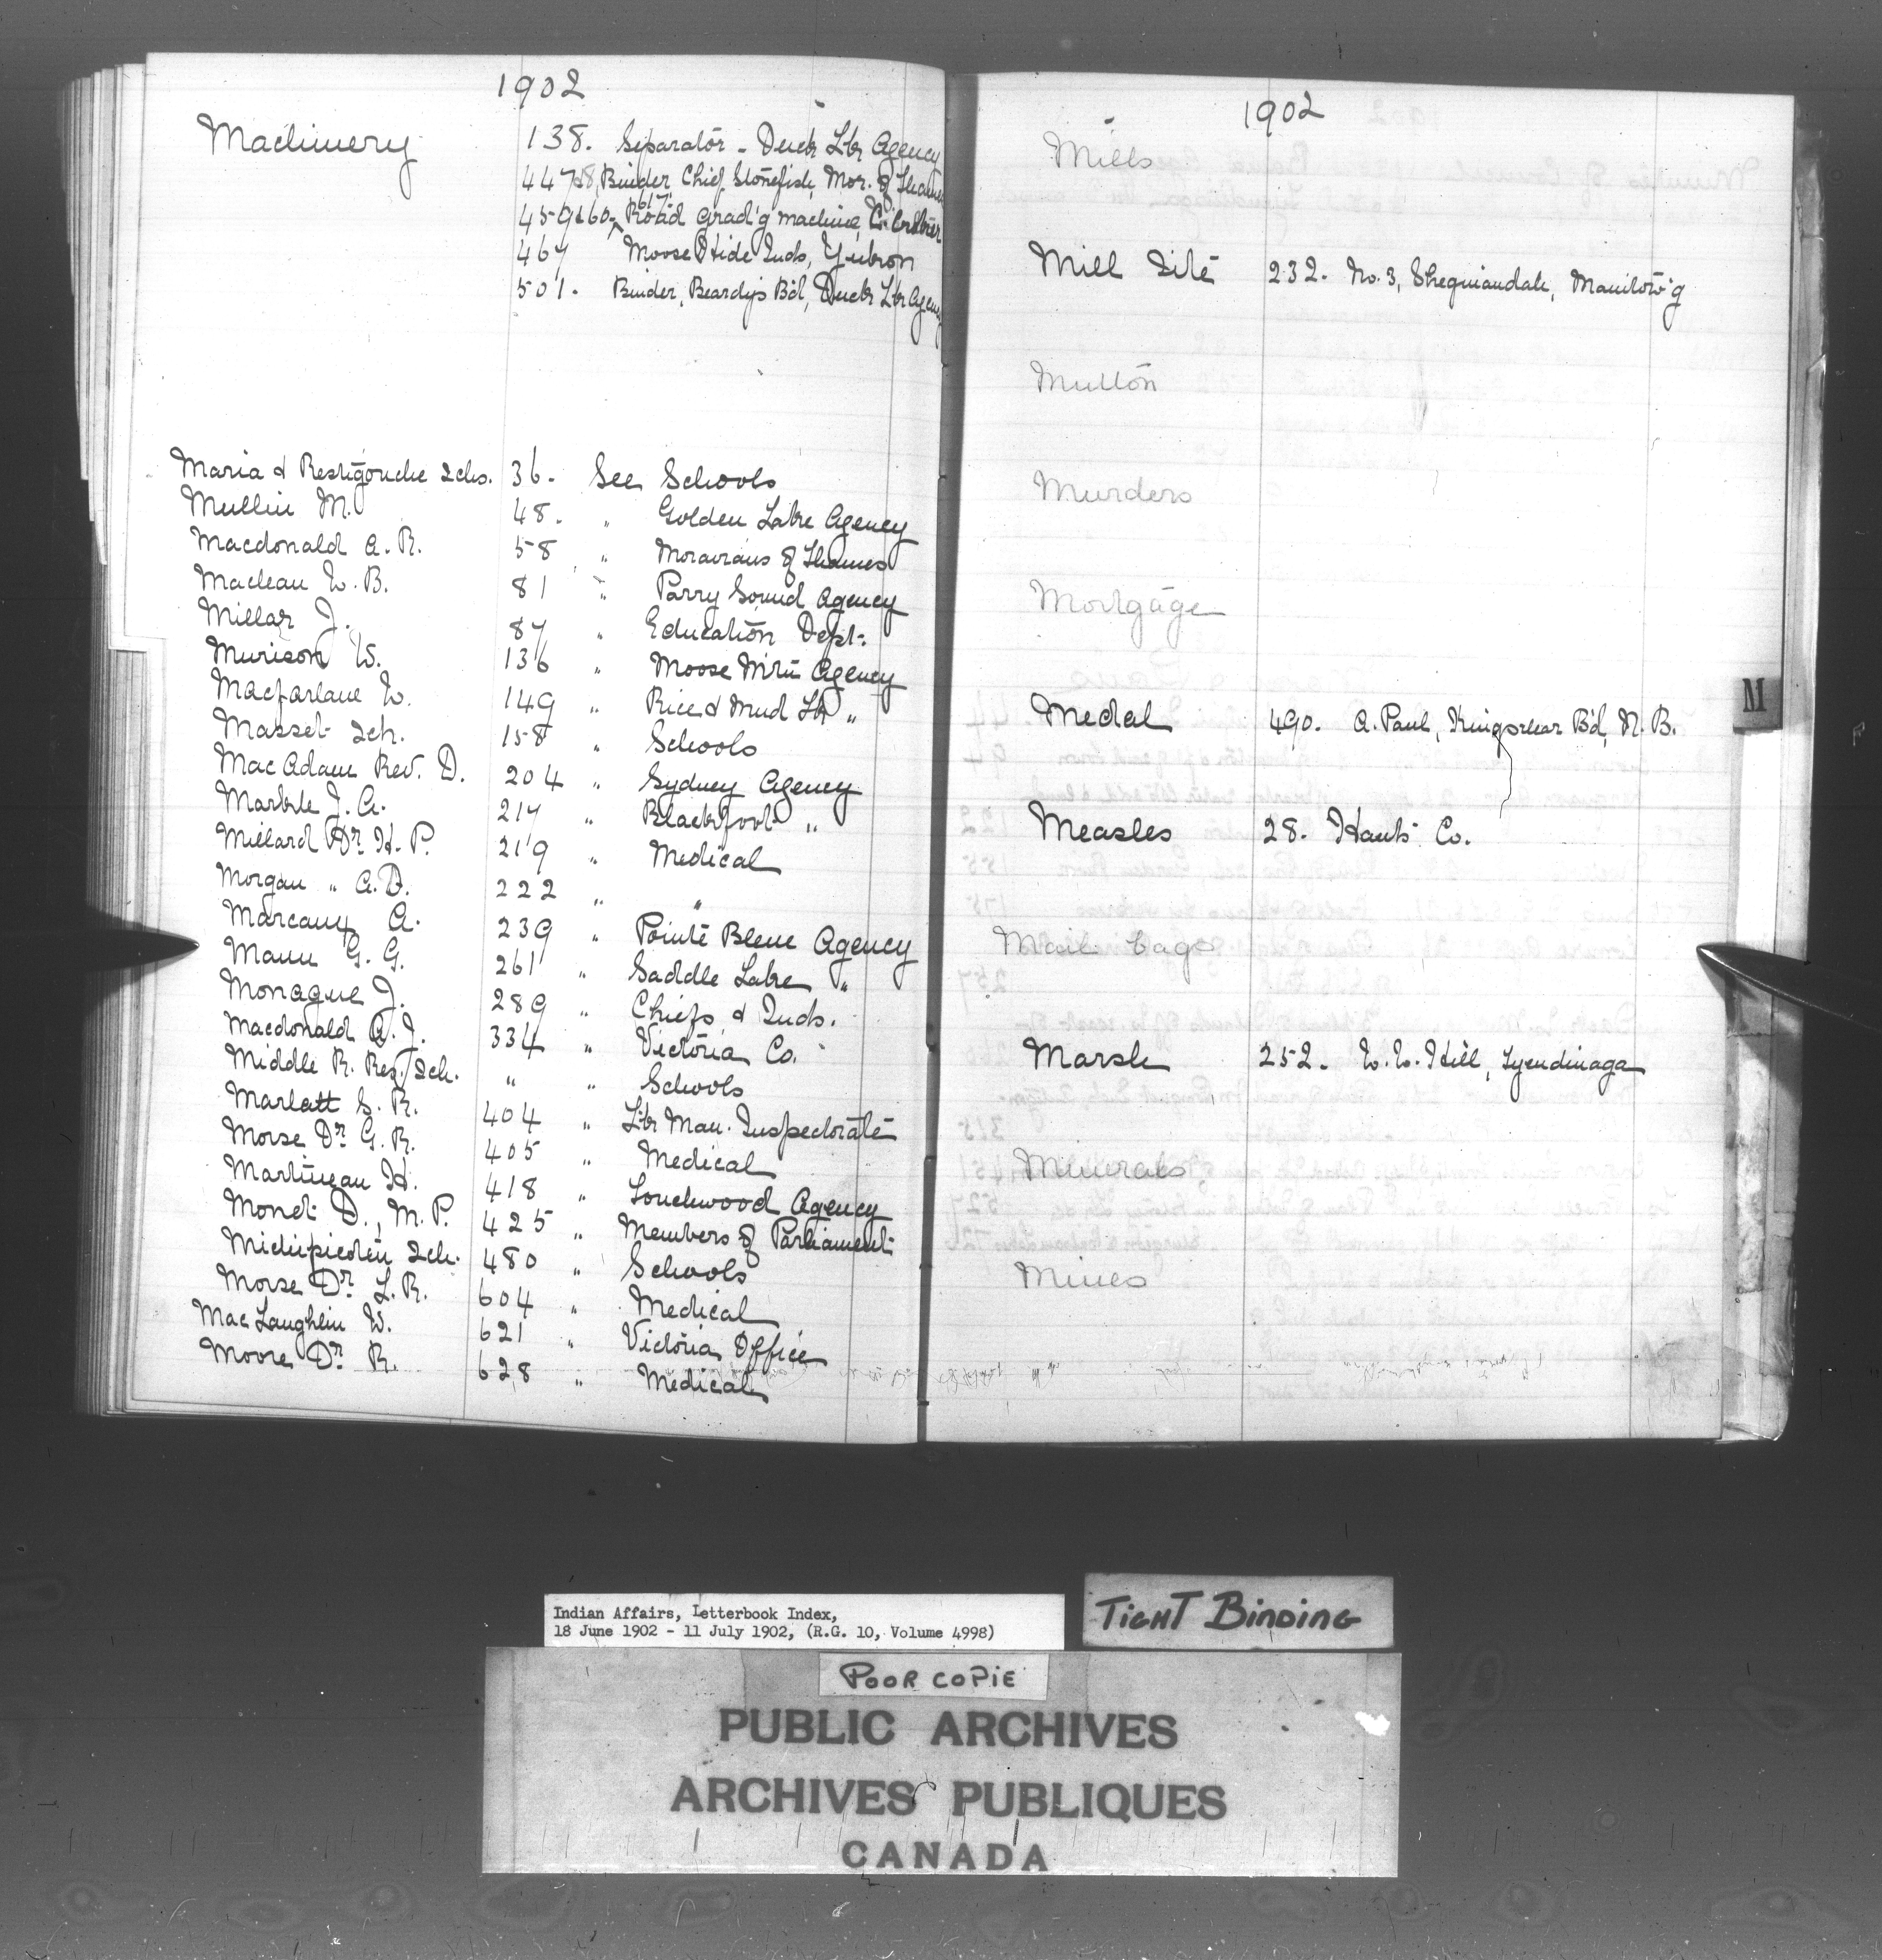 1902
Machinery 138. Separator - Duck Lk Agency
447&8, Binder, Chief Stonefish, Mor. of Thames
617
459&60, Road Grad'g machine,
467 Moose Hide Inds, Yukon
501. Binder, Beardy's B'd, Duck Lk Agency
Maria & Restigouche Schs. 36. See Schools
Mullin M. 48. " Golden Lake Agency
Macdonald A. R. 58 " Moravians of Thames
Maclean W. B. 81 " Parry Sound Agency
Millar J. 87 " Education Dept.
Murison W. 136 " Moose Mtn Agency
Macfarlane W. 149 " Rice & Mud Lk "
Masset Sch. 158 " Schools
MacAdam Rev. D. 204 " Sydney Agency
Markle J. A. 217 " Blackfoot "
Millard Dr. H. P. 219 " Medical
Morgan " A. D. 222 " "
Marcoux A. 239 " Pointe Bleue Agency
Mann G. G. 261 " Saddle Lake "
Monague J. 289 " Chiefs & Inds.
Macdonald A. J. 334 " Victoria Co.
Middle R. Res. Sch. " " Schools
Marlatt S. R. 404 " Lk Man. Inspectorate
Morse Dr. G. R. 405 " Medical
Martineau H. 418 " Touchwood Agency
Monet D., M. P. 425 " Members of Parliament
Michipicoten Sch. 480 " Schools
Morse Dr. L. R. 604 " Medical
MacLaughlin W. 621 " Victoria Office
Moore Dr. R. 628 " Medical
1902
Mills
Mill Site 232. No. 3, Sheguiandah, Manitow'g
Mutton
Murders
Mortgage
M
Medal 490. A. Paul, Kingsclear B'd, N. B.
Measles 28. Hants Co.
Mail bags
Marsh 252. W. W. Hill, Tyendinaga
Minerals
Mines
Indian Affairs, Letterbook Index,
18 June 1902 - 11 July 1902, (R.G. 10, Volume 4998)
TIGHT BINDING
POOR COPIE
PUBLIC ARCHIVES
ARCHIVES PUBLIQUES
CANADA